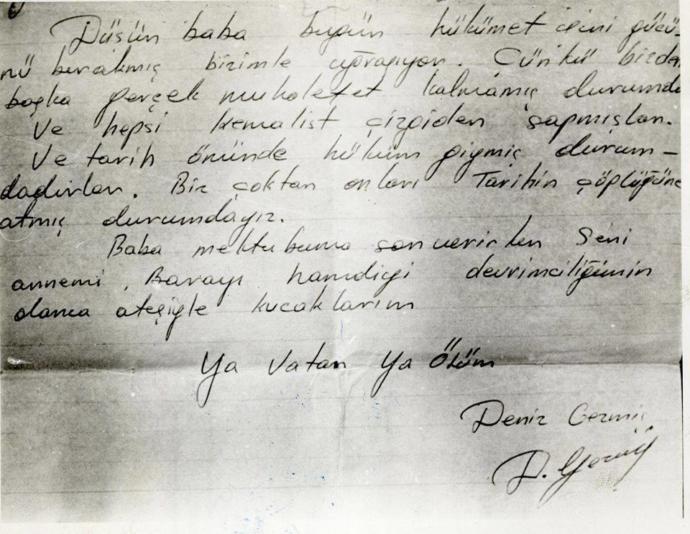 Düşün baba bugün hükümet işini gücü-
nü bırakmış bizimle uğraşıyor. Çünkü bizden
başka gerçek muhalefet kalmamış durumda
Ve hepsi Kemalist çizgiden sapmışlar.
Ve tarih önünde hüküm giymiş durum-
dadırlar. Biz çoktan onları Tarihin çöplüğüne
atmış durumdayız.
Baba mektubuma son verirken Seni
annemi, Borayı hamdiyi devrimciliğimin
olanca ateşiyle kucaklarım
Ya Vatan Ya Ölüm
Deniz Gezmiş
D. Gezmiş